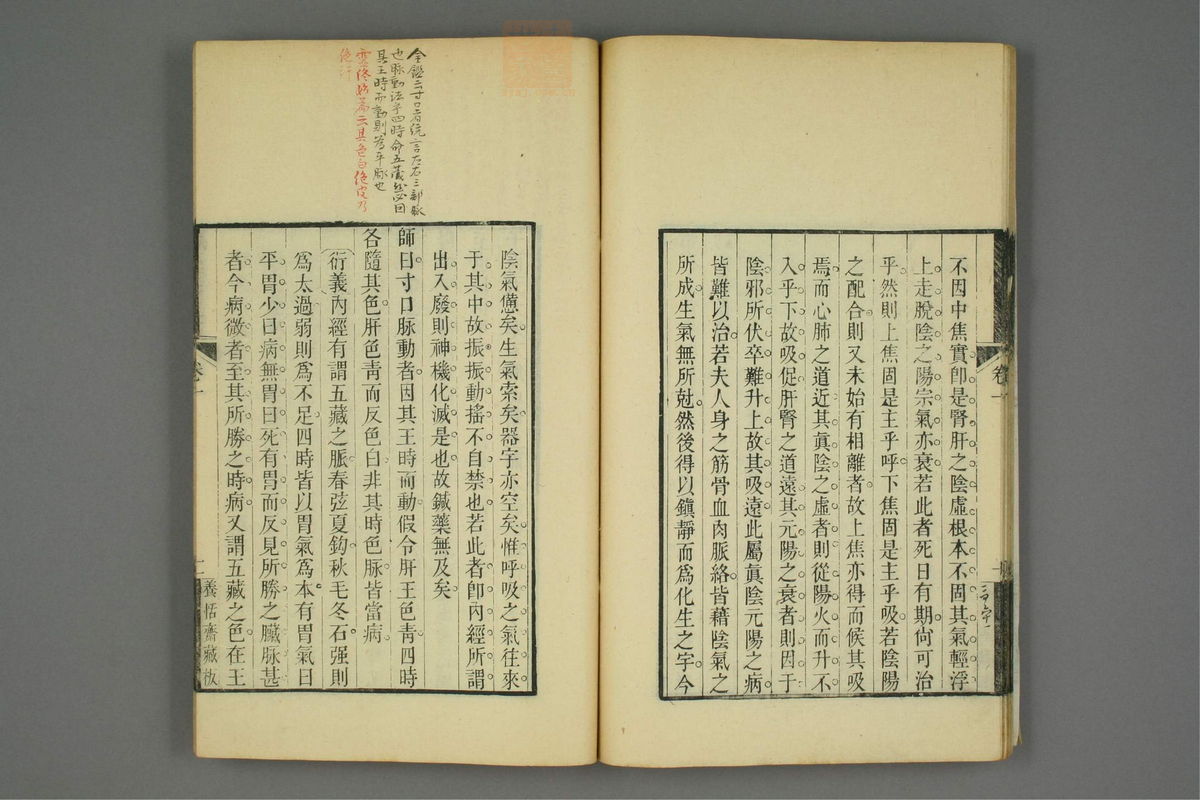 不因中焦實卽是腎肝之陰虛根本不固其氣輕浮
上走脫陰之陽宗氣亦衰若此者死日有期尙可治
乎然則上焦固是主乎呼下焦固是主乎吸若陰陽
之配合則又未始有相離者故上焦亦得而候其吸
焉而心肺之道近其眞陰之虛者則從陽火而升不
入乎下故吸促肝腎之道遠其元陽之衰者則因于
陰邪所伏卒難升上故其吸遠此屬眞陰元陽之病
皆難以治若夫人身之筋骨血肉脈絡皆藉陰氣之
所成生氣無所尅然後得以鎭靜而爲化生之宇今
卷一
陰氣憊矣生氣索矣器宇亦空矣惟呼吸之氣往來
于其中故振振動搖不自禁也若此者卽內經所謂
出入廢則神機化滅是也故鍼藥無及矣
師曰寸口脈動者因其王時而動假令肝王色靑四時
各隨其色肝色靑而反色白非其時色脈皆當病
衍義內經有謂五藏之脈春弦夏鈎秋毛冬石强則
爲太過弱則爲不足四時皆以胃氣爲本有胃氣曰
平胃少曰病無胃曰死有胃而反見所勝之臟脈甚
者今病微者至其所勝之時病又謂五藏之色在王
卷一
二
養恬齋藏板
金鑑云寸口者統言左右三部脈
也脈動法乎四時命五藏然必因
其王時而動則爲平脈也